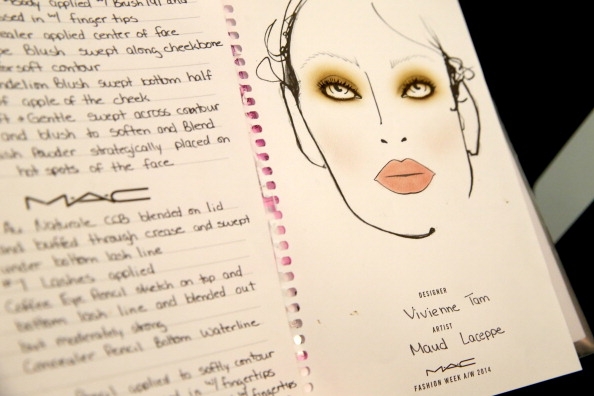 Body applied w/ Brush 191 and
used in w/ fingertips
ealer applied center of face
pe Blush swept along cheekbone
for soft contour
ndelion Blush swept bottom half
of apple of the cheek
ft + Gentle swept across contour
and blush to soften and Blend
ish Powder strategically placed on
hot spots of the face
MAC
Au Naturale CCB blended on lid
and buffed through crease and swept
under bottom lash line
#7 Lashes applied
Coffee Eye Pencil sketch on top and
bottom lash line and blended out
but moderately strong
Concealer Pencil Bottom Waterline
Pencil applied to softly contour
in w/ fingertips
w/ fingertips
DESIGNER
Vivienne Tam
ARTIST
Maud Laceppe
MAC
FASHION WEEK A/W 2014